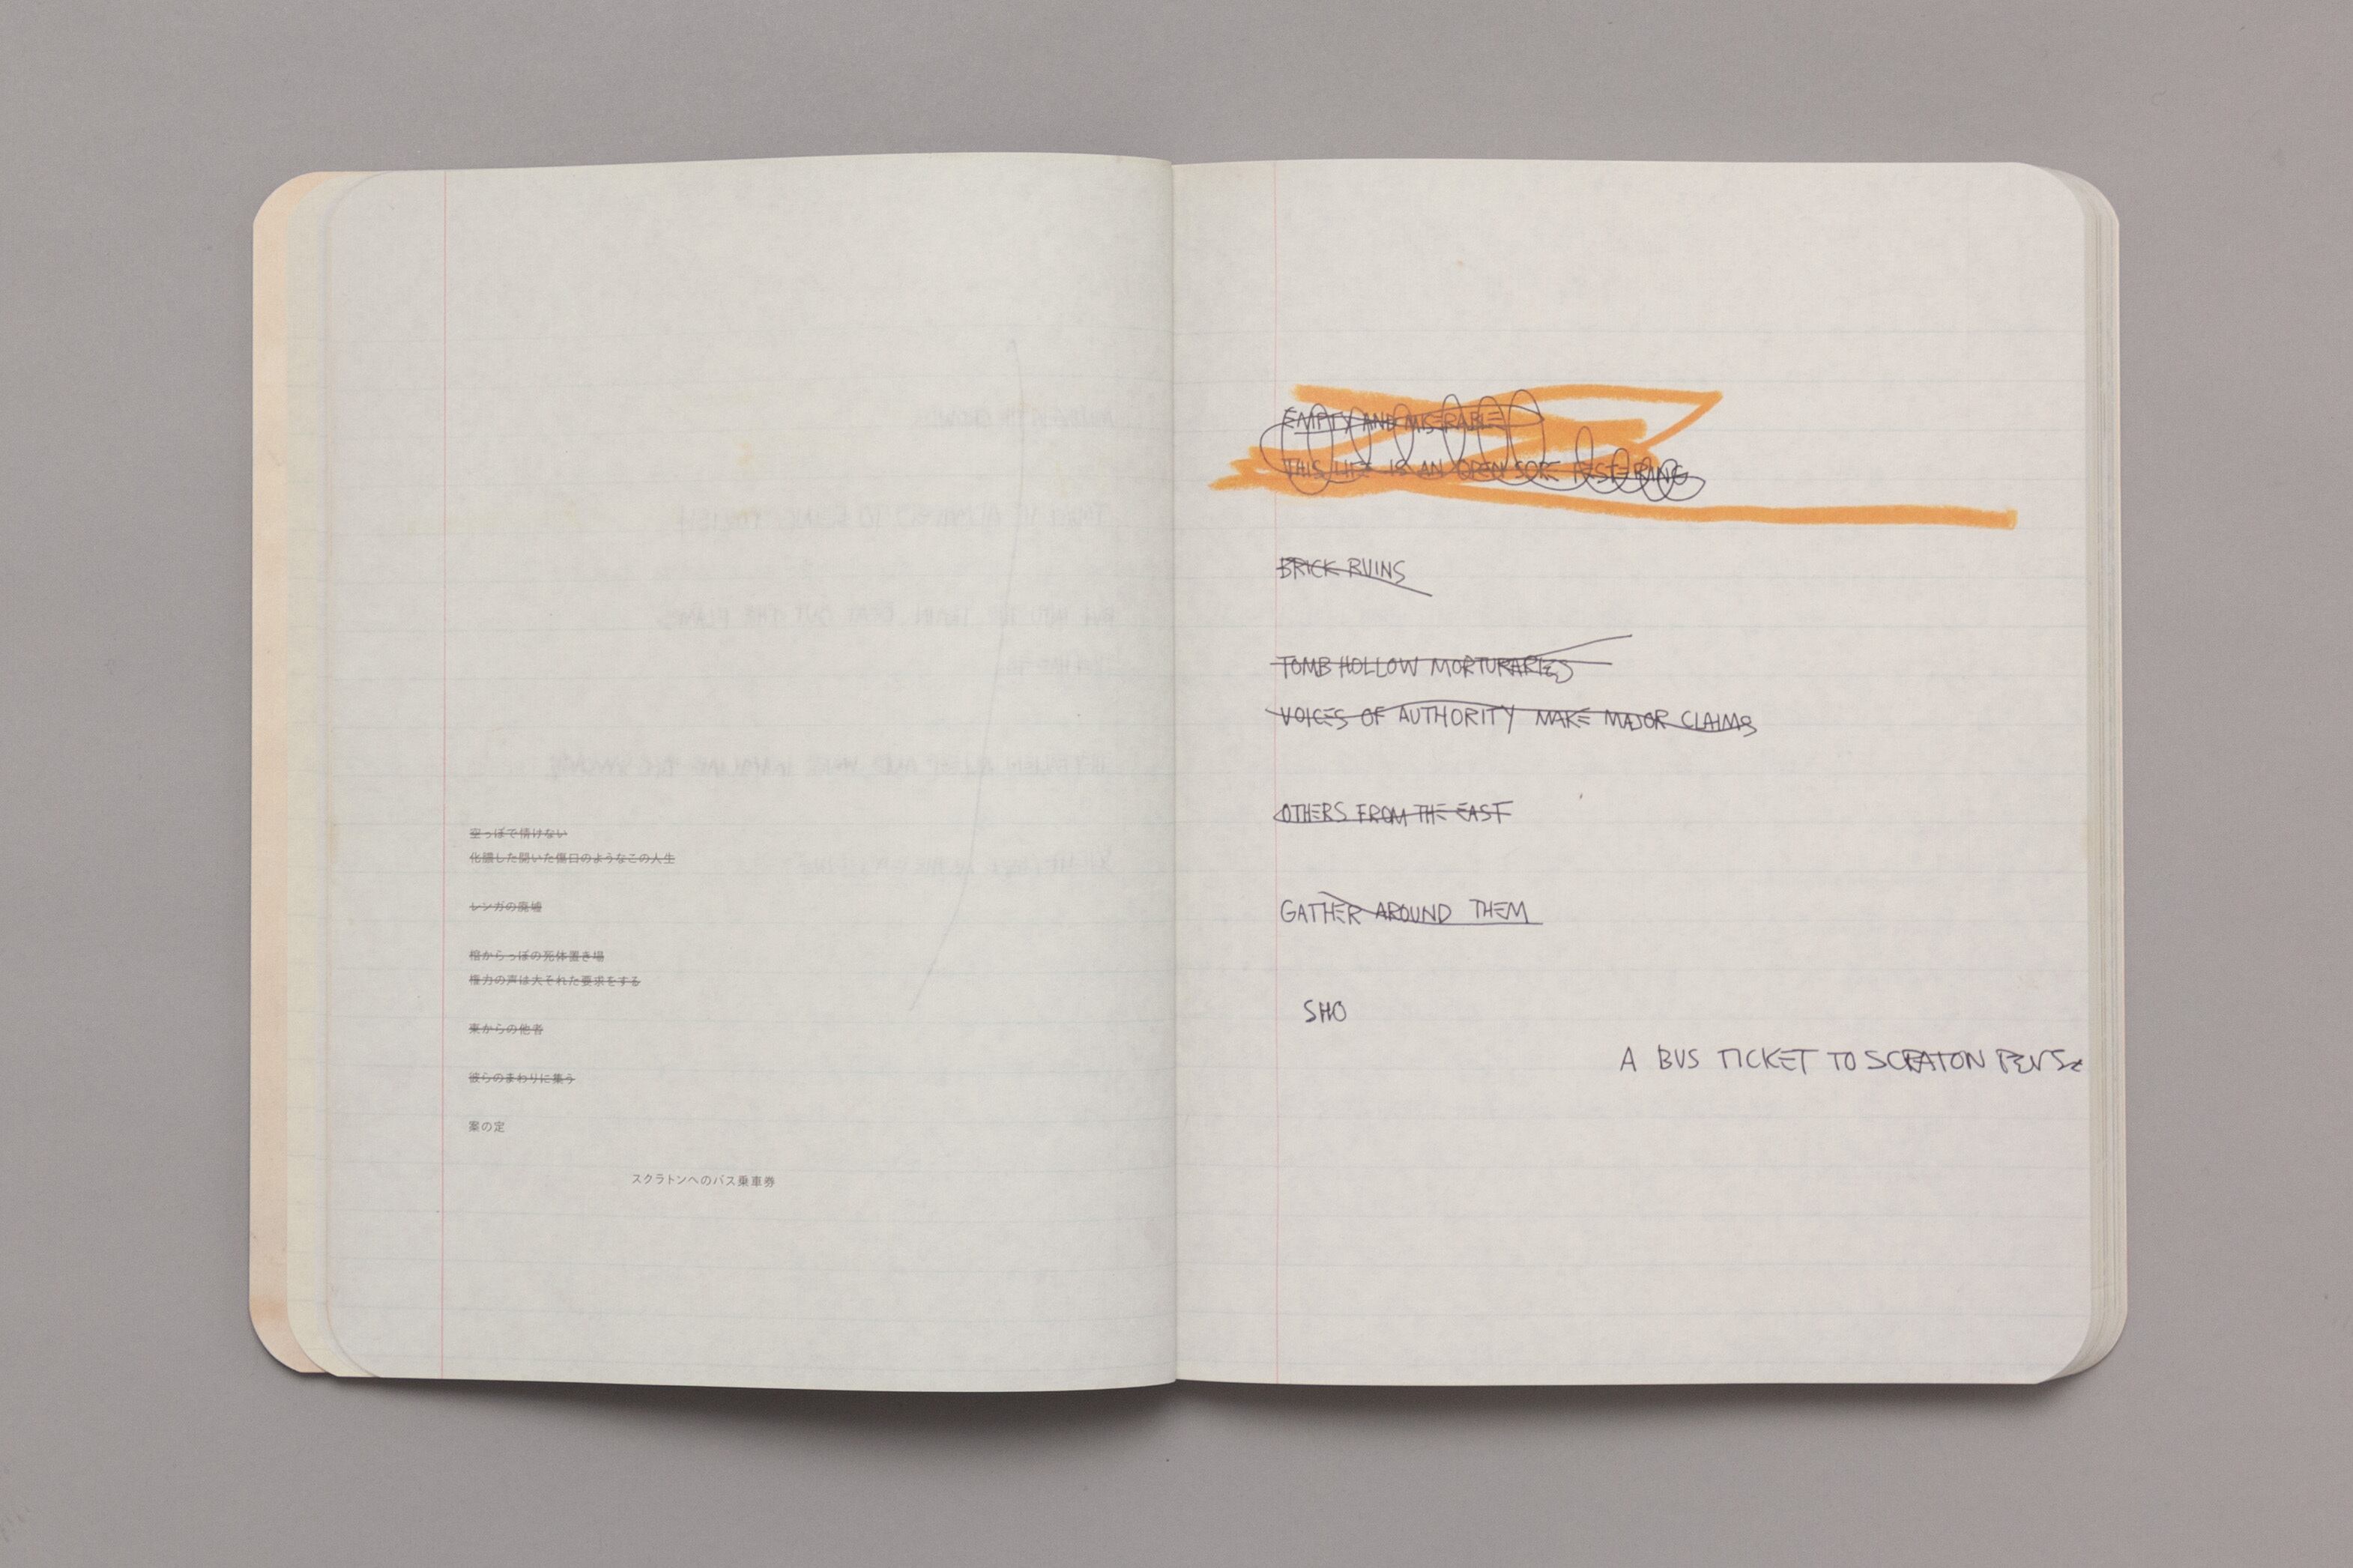 空っぽで情けない
化膿した開いた傷口のようなこの人生
レンガの廃墟
棺からっぽの死体置き場
権力の声は大それた要求をする
東からの他者
彼らのまわりに集う
案の定
スクラトンへのバス乗車券
EMPTY AND MISERABLE
THIS LIFE IS AN OPEN SORE FESTERING
BRICK RUINS
TOMB HOLLOW MORTURARIES
VOICES OF AUTHORITY MAKE MAJOR CLAIMS
OTHERS FROM THE EAST
GATHER AROUND THEM
SHO
A BUS TICKET TO SCRATON